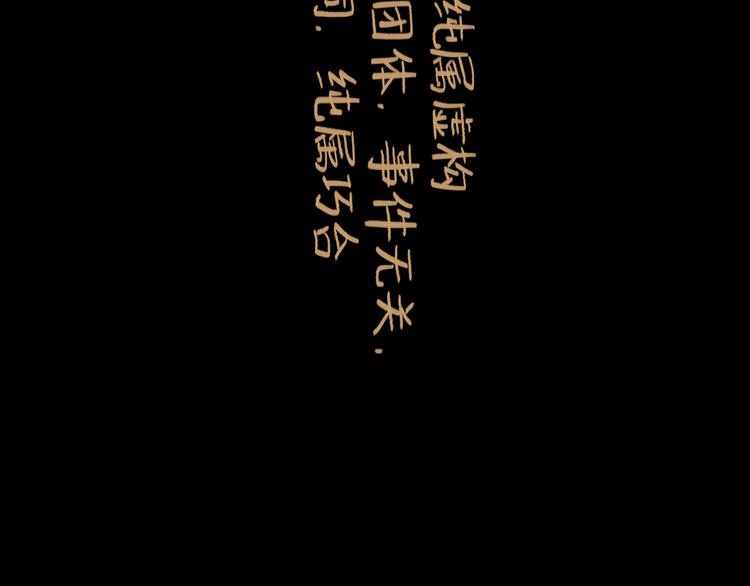 纯属虚构
团体，事件无关，
纯属巧合